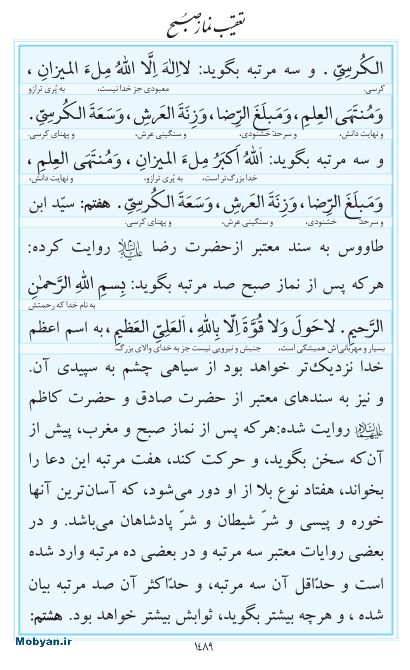 تعقیب نماز صبح
الکُرسِیِّ . و سه مرتبه بگوید: لااِلٰهَ اِلَّا اللهُ مِلءَ المیزانِ ،
کرسی. معبودی جز خدا نیست، به پُری ترازو
وَمُنتَهَی العِلمِ ،وَمَبلَغَ الرِّضا،وَزِنَةَ العَرشِ،وَسَعَةَ الکُرسِیِّ.
و نهایت دانش، و سرحدّ خشنودی، و سنگینی عرش، و پهنای کرسی.
و سه مرتبه بگوید: اَللهُ اَکبَرُ مِلءَ المیزانِ ، وَمُنتَهَی العِلمِ ،
خدا بزرگ‌تر است، به پُری ترازو، و نهایت دانش،
وَمَبلَغَ الرِّضا، وَزِنَةَ العَرشِ ، وَسَعَةَ الکُرسِیِّ . هفتم: سیّد ابن
و سرحدّ خشنودی، و سنگینی عرش، و پهنای کرسی.
طاووس به سند معتبر ازحضرت رضا علیه‌السلام روایت کرده:
هرکه پس از نماز صبح صد مرتبه بگوید: بِسمِ اللهِ الرَّحمٰنِ
به نام خدا که رحمتش
الرَّحیمِ . لاحَولَ وَلا قُوَّةَ اِلّا بِاللهِ، اَلعَلِیِّ العَظیمِ ،به اسم اعظم
بسیار و مهربانی‌اش همیشگی است، جنبش و نیرویی نیست جز به خدای والای بزرگ.
خدا نزدیک‌تر خواهد بود از سیاهی چشم به سپیدی آن.
و نیز به سندهای معتبر از حضرت صادق و حضرت کاظم
علیهماالسلام روایت شده:هرکه پس از نماز صبح و مغرب، پیش از
آن‌که سخن بگوید، و حرکت کند، هفت مرتبه این دعا را
بخواند، هفتاد نوع بلا از او دور می‌شود، که آسان‌ترین آنها
خوره و پیسی و شرّ شیطان و شرّ پادشاهان می‌باشد. و در
بعضی روایات معتبر سه مرتبه و در بعضی ده مرتبه وارد شده
است و حدّاقل آن سه مرتبه، و حدّاکثر آن صد مرتبه بیان
شده ، و هرچه بیشتر بگوید، ثوابش بیشتر خواهد بود. هشتم:
۱۴۸۹
Mobyan.ir